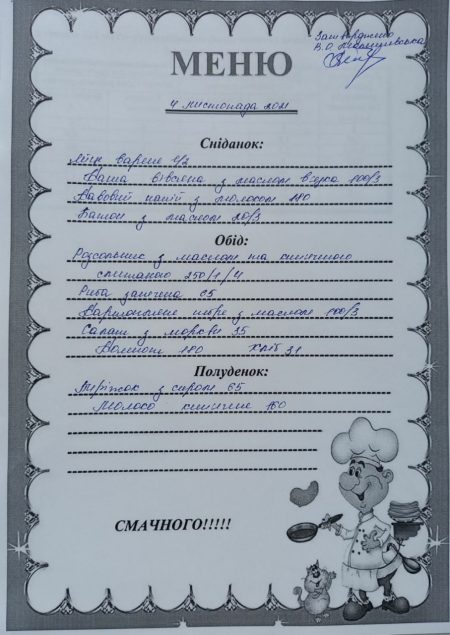 Затверджено
В.О.
МЕНЮ
4 листопада 2021
Сніданок:
Яйце варене 1/2
Каша вівсяна з маслом 100/3
Кавовий напій з молоком 180
Батон з маслом 20/3
Обід:
Розсольник з маслом та кип'яченою
сметаною 250/1/4
Риба запечена 65
Картопляне пюре з маслом 100/3
Салат з моркви 35
Компот 180 хліб 31
Полуденок:
Пиріжок з сиром 65
Молоко кип'ячене 160
СМАЧНОГО!!!!!